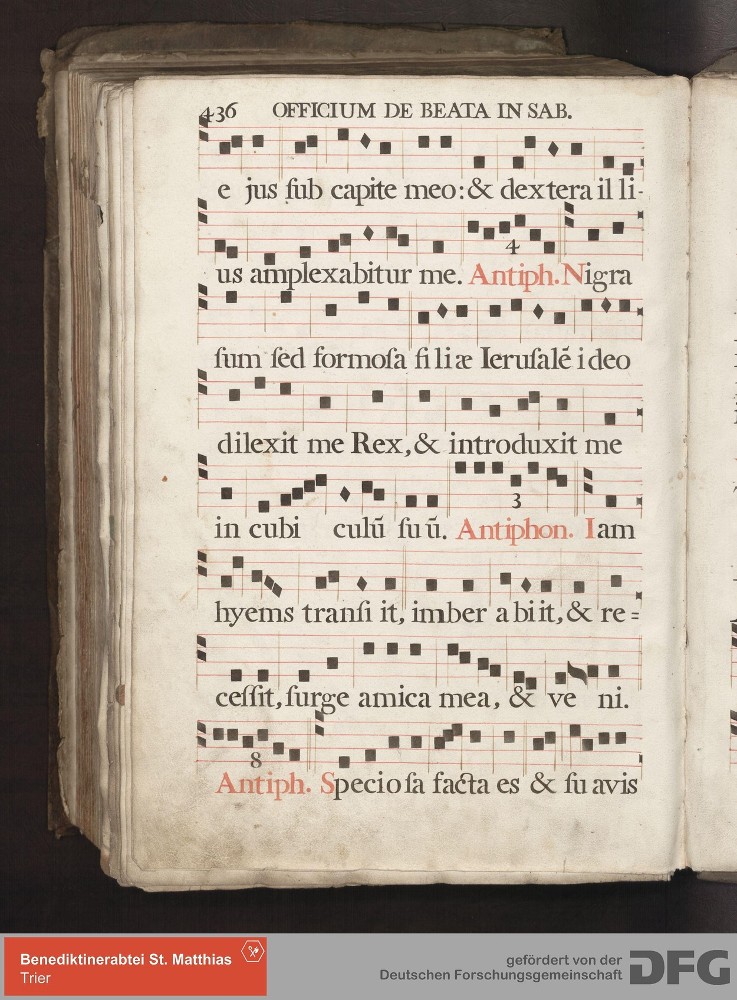 436 OFFICIUM DE BEATA IN SAB.
e jus ſub capite meo: & dextera il li-
4
us amplexabitur me. Antiph. Nigra
ſum ſed formoſa fi li æ Ieruſalē i deo
dilexit me Rex, & introduxit me
3
in cubi culū ſu ū. Antiphon. Iam
hyems tranſi it, imber a bi it, & re=
ceſſit, ſurge amica mea, & ve ni.
8
Antiph. Specio ſa facta es & ſu avis
Benediktinerabtei St. Matthias
Trier
gefördert von der
Deutschen Forschungsgemeinschaft
DFG